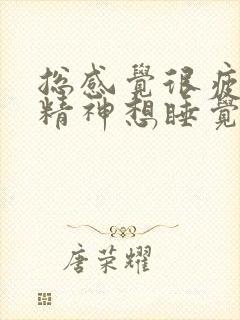 总感覺很疲
精神想睡覺
唐荣耀